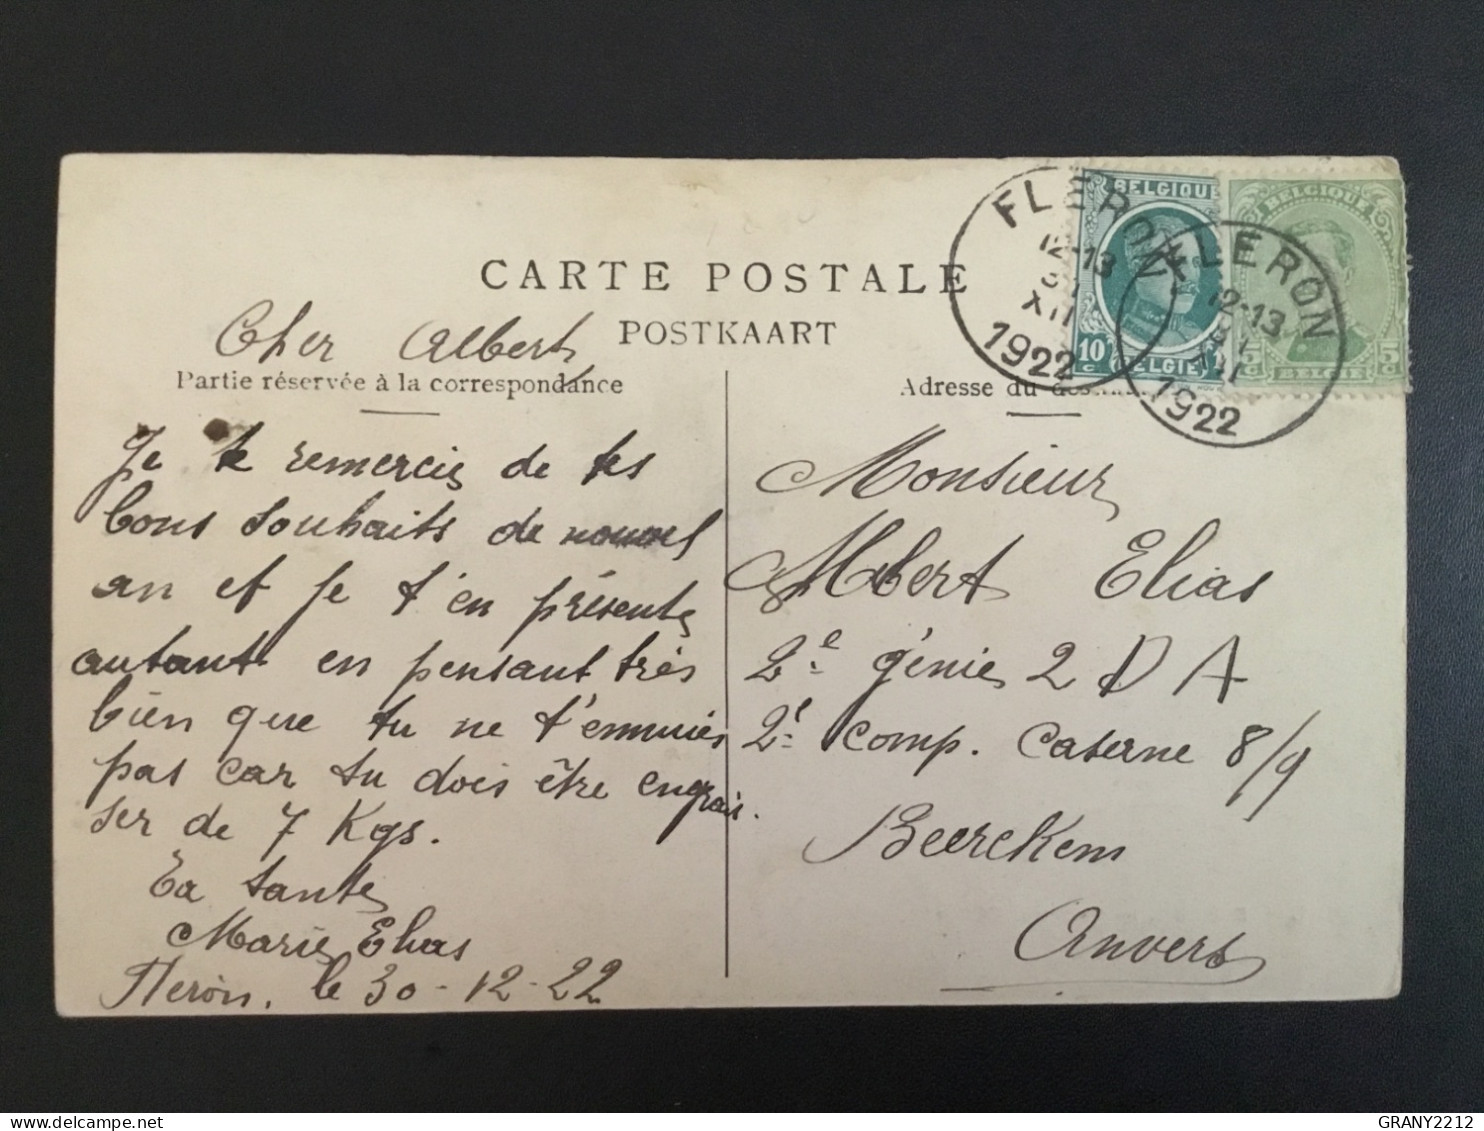 CARTE POSTALE
POSTKAART
Cher Albert
Partie réservée à la correspondance
Je te remercie de tes
bons souhaits de nouvel
an et je t'en présente
autant en pensant très
bien que tu ne t'ennuies
pas car tu dois être engrais.
ser de 7 Kgs.
Ta tante
Marie Elias
Fleron, le 30-12-22
BELGIQUE
10 c
BELGIË
BELGIQUE
5 c 5 c
BELGIE
FLERON
12-13
XII
1922
FLERON
12-13
XII
1922
Adresse du
Monsieur
Albert Elias
2e génie 2 D A
2e comp. Caserne 8/9
Beerckem
Anvers
delcampe.net
GRANY2212